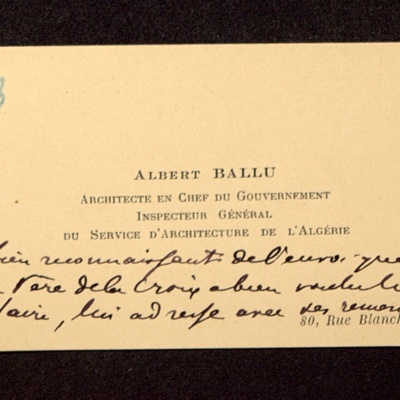 Albert BALLU
Architecte en Chef du Gouvernement
Inspecteur Général
du Service d'Architecture de l'Algérie
bien reconnaissant de l'envoi que
Père de la Croix a bien voulu lui
faire, lui adresse avec ses remer
80, Rue Blanch